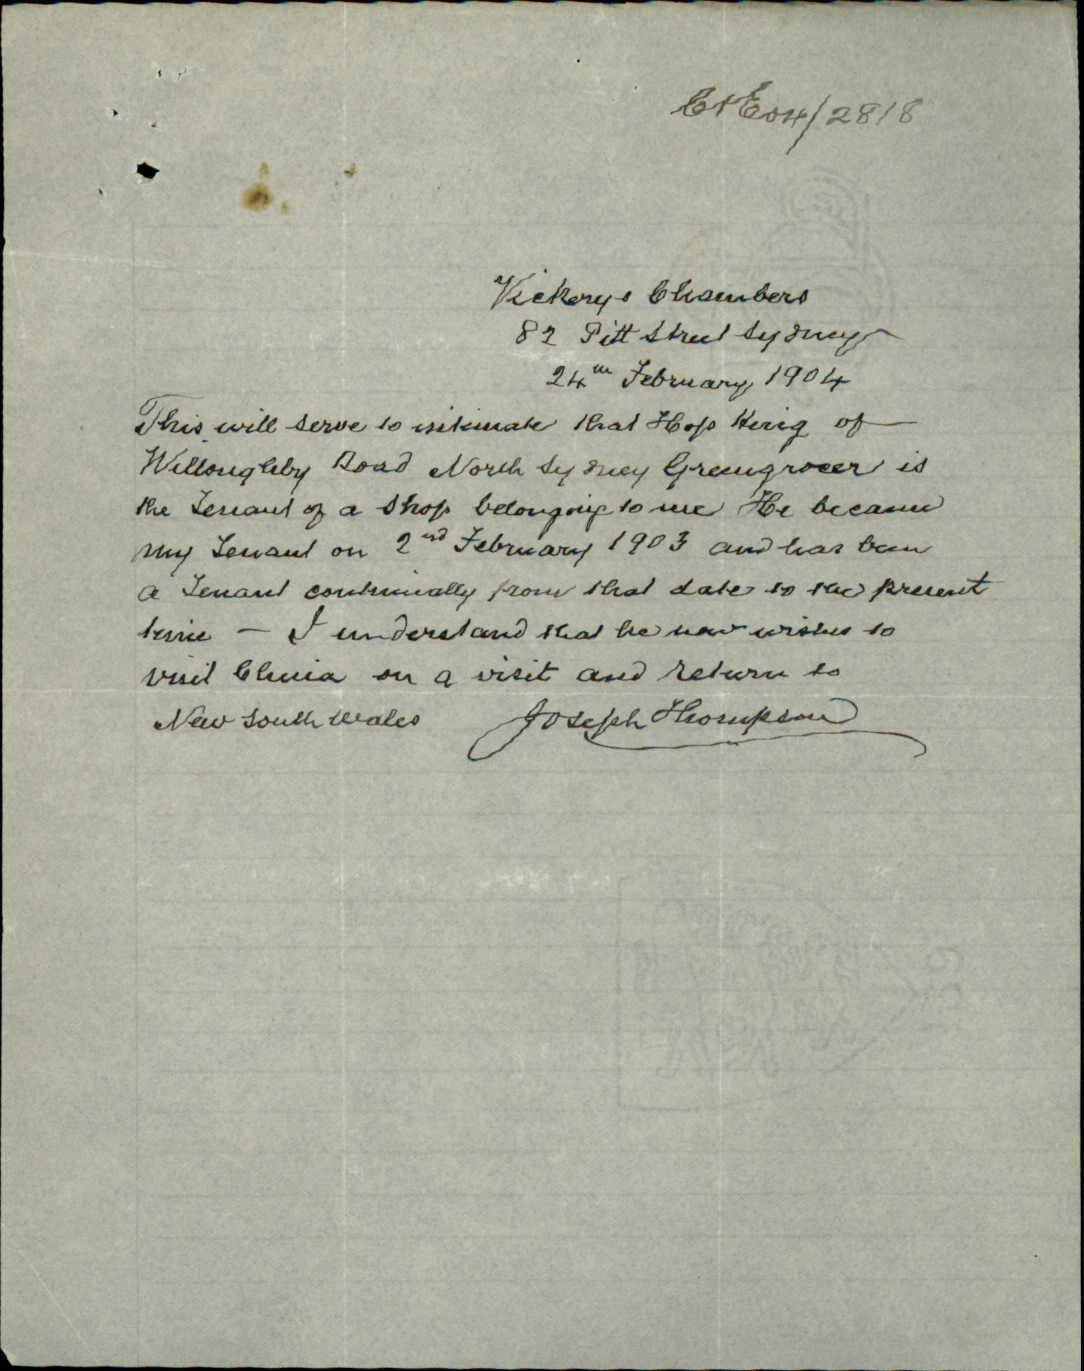 C&E04/2818
Vickerys Chambers
82 Pitt Street Sydney
24th February 1904
This will serve to intimate that Hop King of
Willoughby Road North Sydney Greengrocer is
the Tenant of a Shop belonging to me He became
my Tenant on 2nd February 1903 and has been
a Tenant continually from that date to the present
time — I understand that he now wishes to
visit China on a visit and return to
New South Wales Joseph Thompson